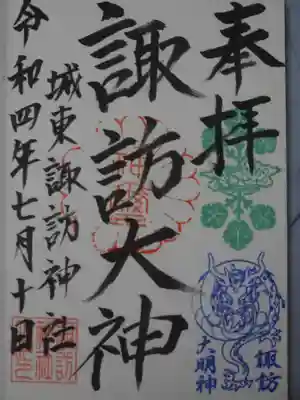 奉拝
諏訪大神
城東諏訪神社
令和四年七月十日
諏訪
大明神